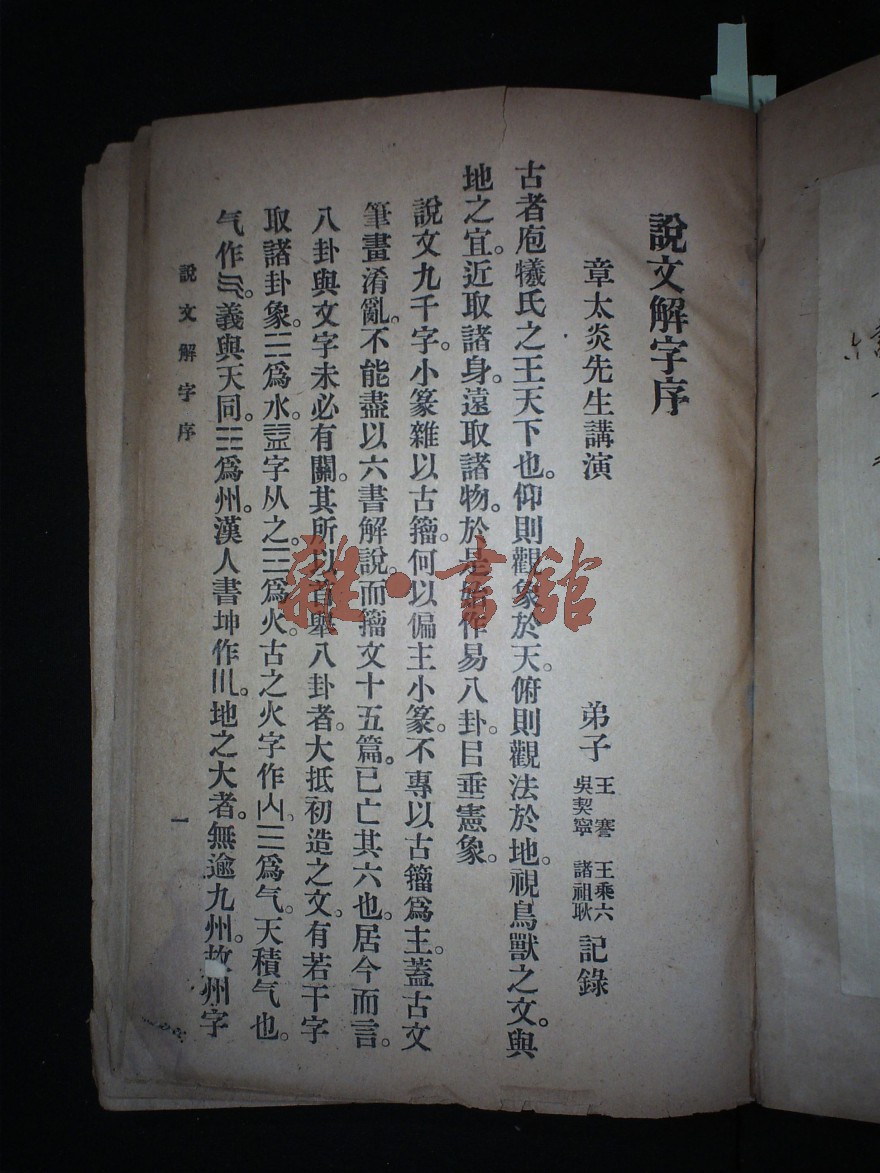 說文解字序
章太炎先生講演 弟子 王謇 王乘六 吳契寧 諸祖耿 記錄
古者庖犧氏之王天下也。仰則觀象於天。俯則觀法於地。視鳥獸之文。與
地之宜。近取諸身。遠取諸物。於是始作易八卦。㠯垂憲象。
說文九千字。小篆雜以古籀。何以偏主小篆。不專以古籀爲主。蓋古文
筆畫淆亂。不能盡以六書解說。而籀文十五篇。已亡其六也。居今而言。
八卦與文字未必有關。其所以首舉八卦者。大抵初造之文。有若干字
取諸卦象。☵爲水。益字从之。☲爲火。古之火字作火。☰爲气。天積气也。
气作气。義與天同。☷爲州。漢人書坤作巛。地之大者。無逾九州。故州字
說文解字序
一
雜·書館